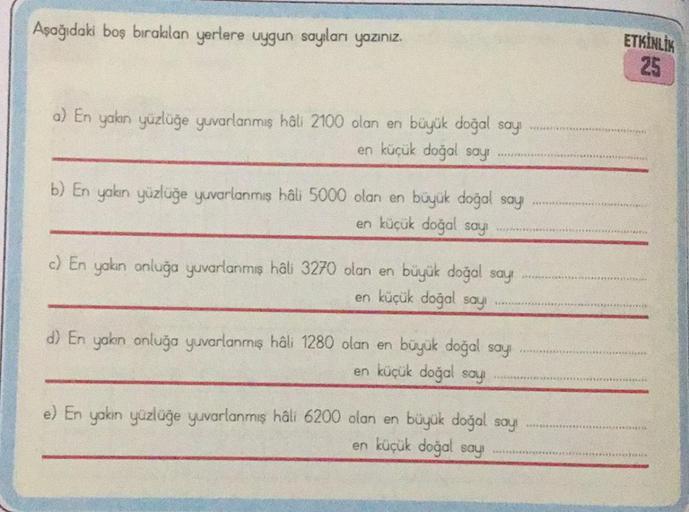 Aşağıdaki boş bırakılan yerlere uygun sayıları yazınız.
ETKİNLİK
25
a) En yakın yüzlüğe yuvarlanmış hâli 2100 olan en büyük doğal sayı ....................
en küçük doğal sayı ....................
b) En yakın yüzlüğe yuvarlanmış hâli 5000 olan en büyük doğal sayı ....................
en küçük doğal sayı ....................
c) En yakın onluğa yuvarlanmış hâli 3270 olan en büyük doğal sayı ....................
en küçük doğal sayı ....................
d) En yakın onluğa yuvarlanmış hâli 1280 olan en büyük doğal sayı ....................
en küçük doğal sayı ....................
e) En yakın yüzlüğe yuvarlanmış hâli 6200 olan en büyük doğal sayı ....................
en küçük doğal sayı ....................